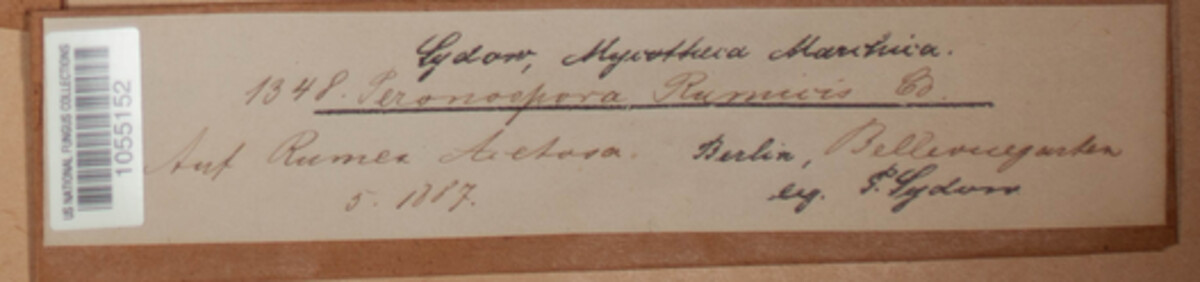 Sydow, Mycotheca Marchica.
1348. Peronospora Rumicis Cd.
Auf Rumex Acetosa. Berlin, Bellevuegarten
5. 1887. leg. P. Sydow
US NATIONAL FUNGUS COLLECTIONS
1055152